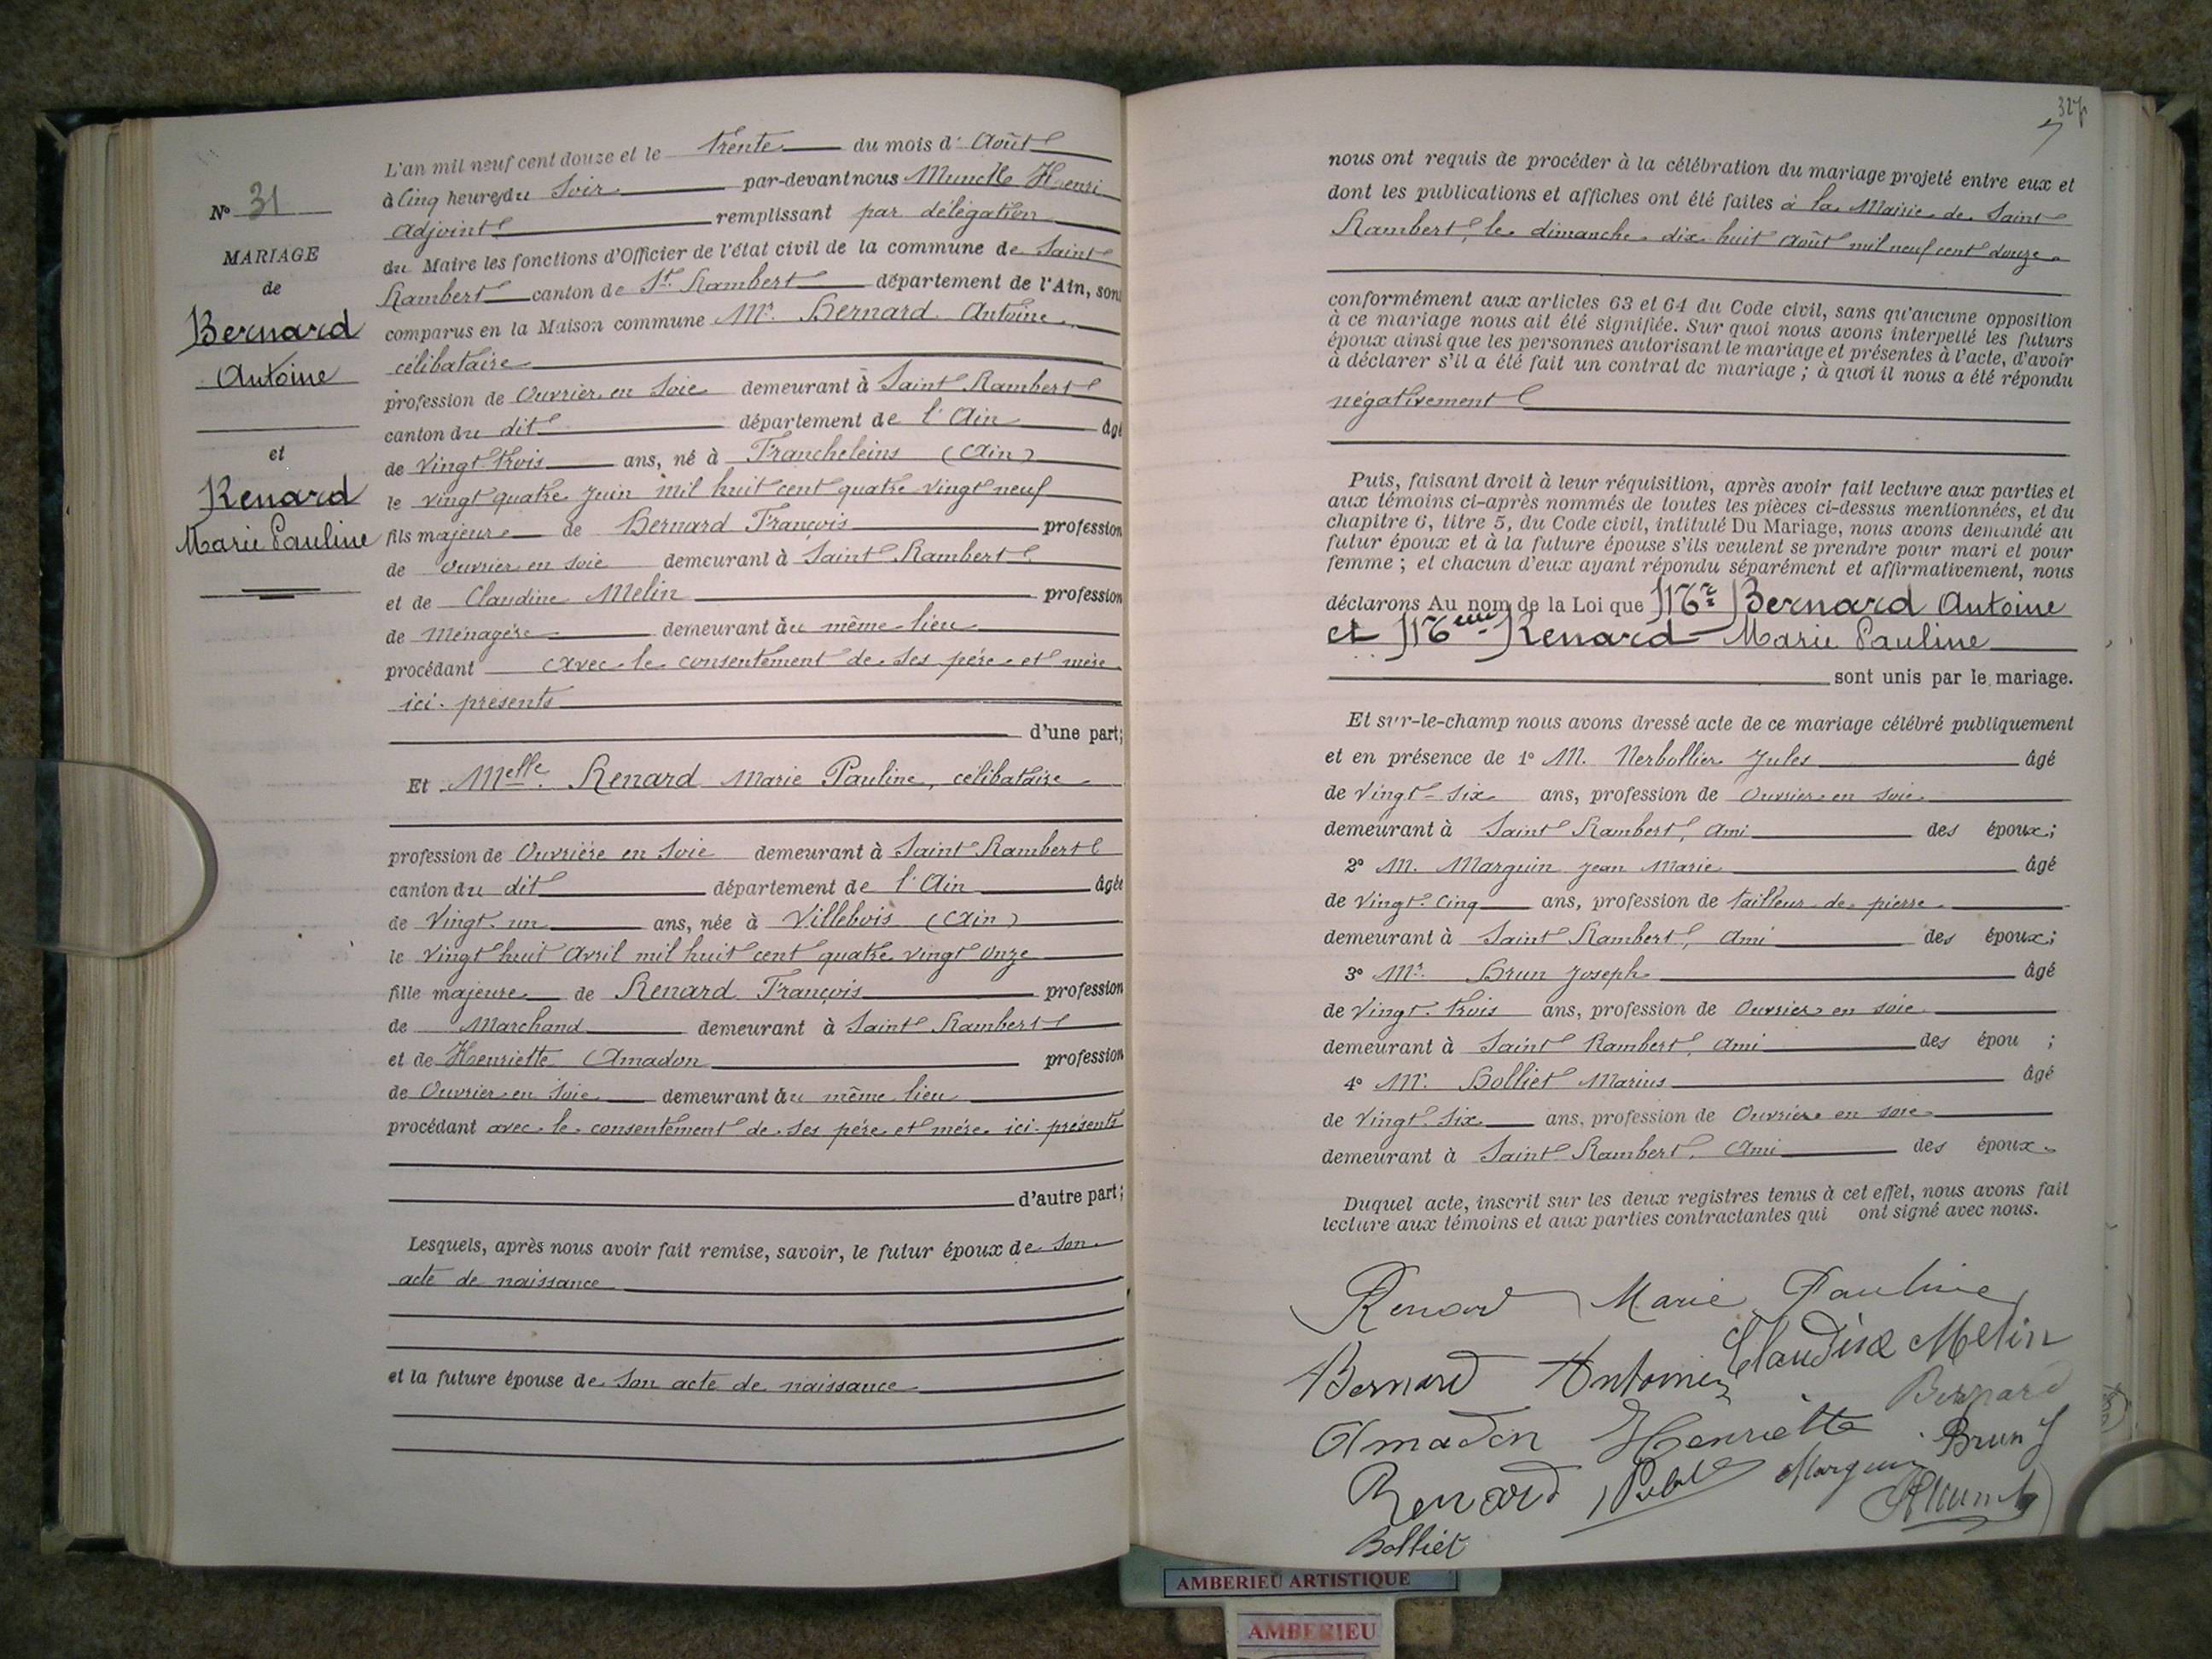 N° 31
MARIAGE
de
Bernard
Antoine
et
Renard
Marie Pauline
L'an mil neuf cent douze et le trente du mois d' Août
à Cinq heures du Soir par-devant nous Henri
adjoint remplissant par délégation
du Maire les fonctions d'Officier de l'état civil de la commune de Saint
Rambert canton de St. Rambert département de l'Ain, sont
comparus en la Maison commune Mr. Bernard Antoine
célibataire
profession de Ouvrier en Soie demeurant à Saint Rambert
canton du dit département de l'Ain âgé
de Vingt trois ans, né à Francheleins (Ain)
le vingt quatre Juin mil huit cent quatre vingt neuf
fils majeur de Bernard François profession
de Ouvrier en soie demeurant à Saint Rambert
et de Claudine Melin profession
de Ménagère demeurant au même lieu
procédant avec le consentement de ses père et mère
ici présents
d'une part;
Et Melle. Renard Marie Pauline, célibataire
profession de Ouvrière en Soie demeurant à Saint Rambert
canton du dit département de l'Ain âgée
de Vingt un ans, née à Villebois (Ain)
le Vingt huit Avril mil huit cent quatre vingt Onze
fille majeure de Renard François profession
de Marchand demeurant à Saint Rambert
et de Henriette Amadon profession
de Ouvrier en Soie demeurant au même lieu
procédant avec le consentement de ses père et mère ici présents
d'autre part;
Lesquels, après nous avoir fait remise, savoir, le futur époux de son
acte de naissance
et la future épouse de son acte de naissance
nous ont requis de procéder à la célébration du mariage projeté entre eux et
dont les publications et affiches ont été faites à la Mairie de Saint
Rambert, le dimanche dix huit Août mil neuf cent douze
conformément aux articles 63 et 64 du Code civil, sans qu'aucune opposition
à ce mariage nous ait été signifiée. Sur quoi nous avons interpellé les futurs
époux ainsi que les personnes autorisant le mariage et présentes à l'acte, d'avoir
à déclarer s'il a été fait un contrat de mariage ; à quoi il nous a été répondu
négativement
Puis, faisant droit à leur réquisition, après avoir fait lecture aux parties et
aux témoins ci-après nommés de toutes les pièces ci-dessus mentionnées, et du
chapitre 6, titre 5, du Code civil, intitulé Du Mariage, nous avons demandé au
futur époux et à la future épouse s'ils veulent se prendre pour mari et pour
femme ; et chacun d'eux ayant répondu séparément et affirmativement, nous
déclarons Au nom de la Loi que Mr. Bernard Antoine
et Melle Renard Marie Pauline
sont unis par le mariage.
Et sur-le-champ nous avons dressé acte de ce mariage célébré publiquement
et en présence de 1° M. Nerbollier Jules âgé
de Vingt-six ans, profession de Ouvrier en soie
demeurant à Saint Rambert, ami des époux;
2° M. Marguin Jean Marie âgé
de Vingt Cinq ans, profession de tailleur de pierre
demeurant à Saint Rambert, ami des époux;
3° Mr. Brun Joseph âgé
de Vingt trois ans, profession de Ouvrier en soie
demeurant à Saint Rambert, ami des épou ;
4° Mr. Bolliet Marius âgé
de Vingt Six ans, profession de Ouvrier en soie
demeurant à Saint Rambert, Ami des époux
Duquel acte, inscrit sur les deux registres tenus à cet effet, nous avons fait
lecture aux témoins et aux parties contractantes qui ont signé avec nous.
Renard Marie Pauline
Claudine Melin
Bernard Antoine
Bernard
Amadon Henriette
Brun J
Renard
Marguin
Bolliet
AMBERIEU ARTISTIQUE
AMBERIEU